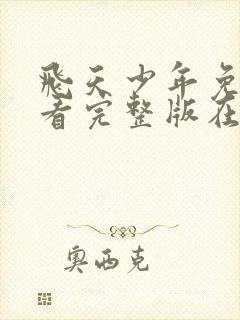 飛天少年免
看完整版在
奧西克